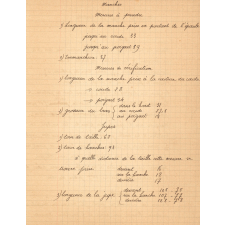 Manches
Mesures à prendre
1) Longueur de la manche prise en partant de l'épaule
jusqu'au coude 33
jusqu'au poignet 59
2) Emmanchure: 37
Mesures de vérification
longueur de la manche prise à la couture du coude
→ coude
→ poignet
2) grosseur du bras dans le haut
au coude
au poignet 16
Jupes
1) Tour de taille: 65
2) Tour de hanches: 93
À quelle distance de la taille cette mesure se
trouve prise devant
sur la hanche
derrière 17
3) Longueur de la jupe devant
sur la hanche
derrière